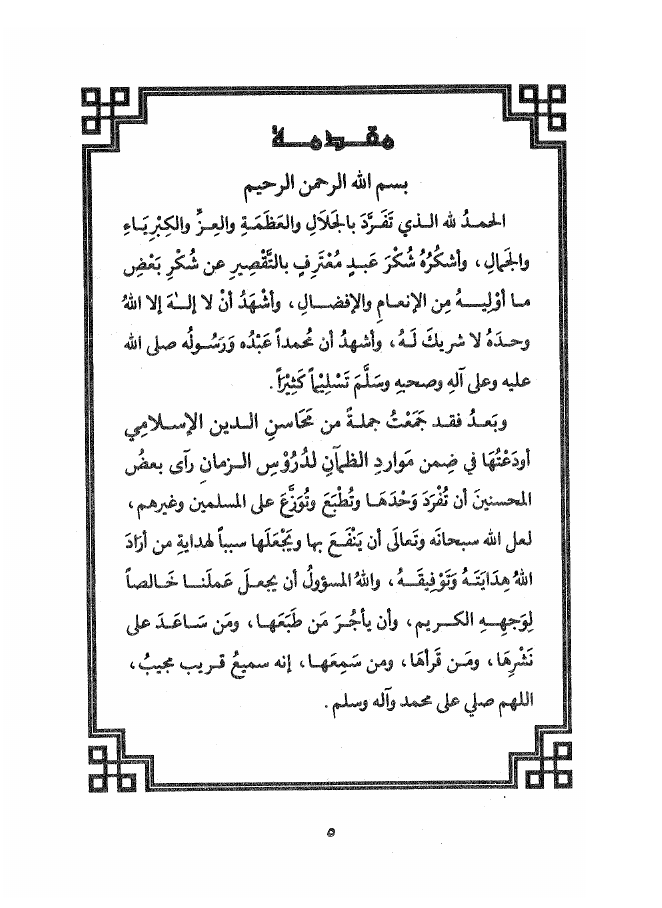 مقدمة
بسم الله الرحمن الرحيم
الحمدُ لله الذي تَفَرَّدَ بالجَلالِ والعَظَمَةِ والعِزِّ والكِبْرِيَاءِ
والجَمالِ، وأشكُرُهُ شُكْرَ عَبدٍ مُعْتَرِفٍ بالتَّقْصِيرِ عن شُكْرِ بَعْضِ
ما أوْلِيهُ مِن الإنعامِ والإفضالِ، وأشْهَدُ أنْ لا إلهَ إلا اللهُ
وحدَهُ لا شريكَ لَهُ، وأشهدُ أن مُحمداً عَبْدُه وَرَسُولُه صلى الله
عليه وعلى آلِهِ وصحبِهِ وسَلَّمَ تَسْلِيْماً كَثِيْرَاً.
وبَعدُ فقد جَمَعْتُ جملةً من مَحَاسنِ الدين الإسلامي
أودَعْتُهَا في ضِمن مَواردِ الظمآنِ لدُرُوْسِ الزمانِ رآى بعضُ
المحسنينَ أن تُفْرَدَ وَحْدَهَا وتُطْبَعَ وتُوَزَّعَ على المسلمين وغيرهم،
لعل الله سبحانَه وتَعالَى أن يَنْفَعَ بها ويَجْعَلَها سبباً لهدايةِ من أرَادَ
اللهُ هِدَايَتَهُ وَتَوْفِيقَهُ، واللهُ المسؤولُ أن يجعلَ عَملَنا خَالصاً
لِوَجهِهِ الكريم، وأن يأجُرَ مَن طَبَعَها، ومَن سَاعَدَ على
نَشْرِهَا، ومَن قَرأهَا، ومن سَمِعَها، إنه سميعُ قريب مجيبُ،
اللهم صلي على محمد وآله وسلم.
٥